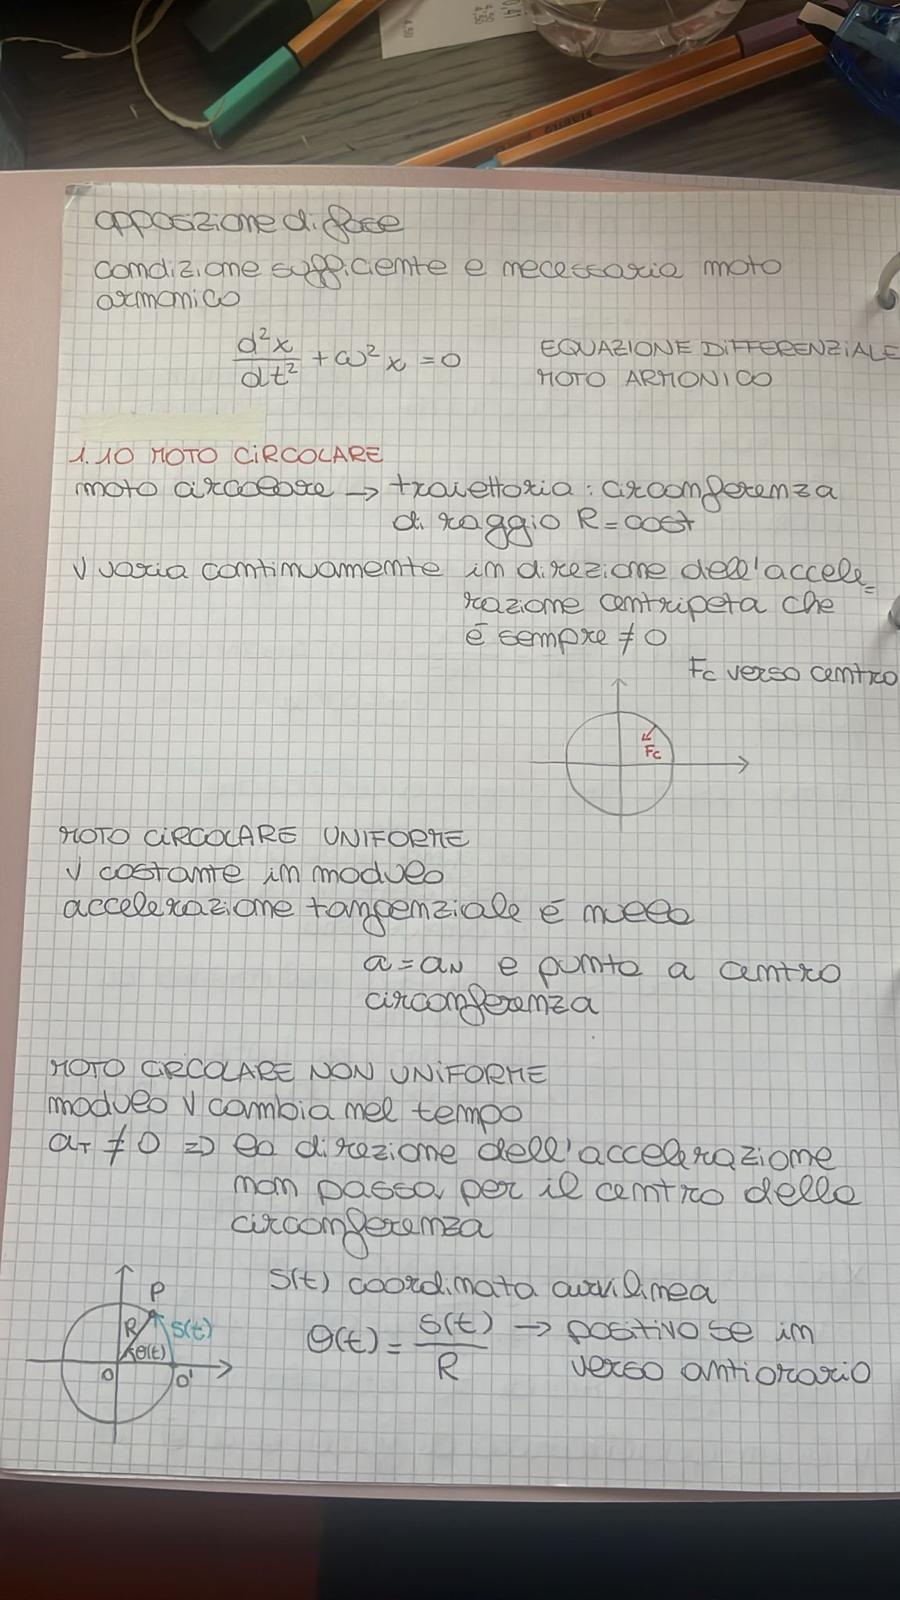 4,50
0,41
4,50
4,50
opposizione di fase
condizione sufficiente e necessaria moto
armonico
d²x/dt² + ω² x = 0
EQUAZIONE DIFFERENZIALE
MOTO ARMONICO
1.10 MOTO CIRCOLARE
moto circolare → traiettoria: circonferenza
di raggio R = cost
v varia continuamente in direzione dell'accele=
razione centripeta che
é sempre ≠ 0
Fc verso centro
Fc
MOTO CIRCOLARE UNIFORME
v costante in modulo
accelerazione tangenziale é nulla
a = aN e punta a centro
circonferenza
MOTO CIRCOLARE NON UNIFORME
modulo v cambia nel tempo
aT ≠ 0 => la direzione dell'accelerazione
non passa per il centro della
circonferenza
S(t) coordinata curvilinea
θ(t) = S(t)/R → positivo se in
verso antiorario
P
R
S(t)
θ(t)
O
O'